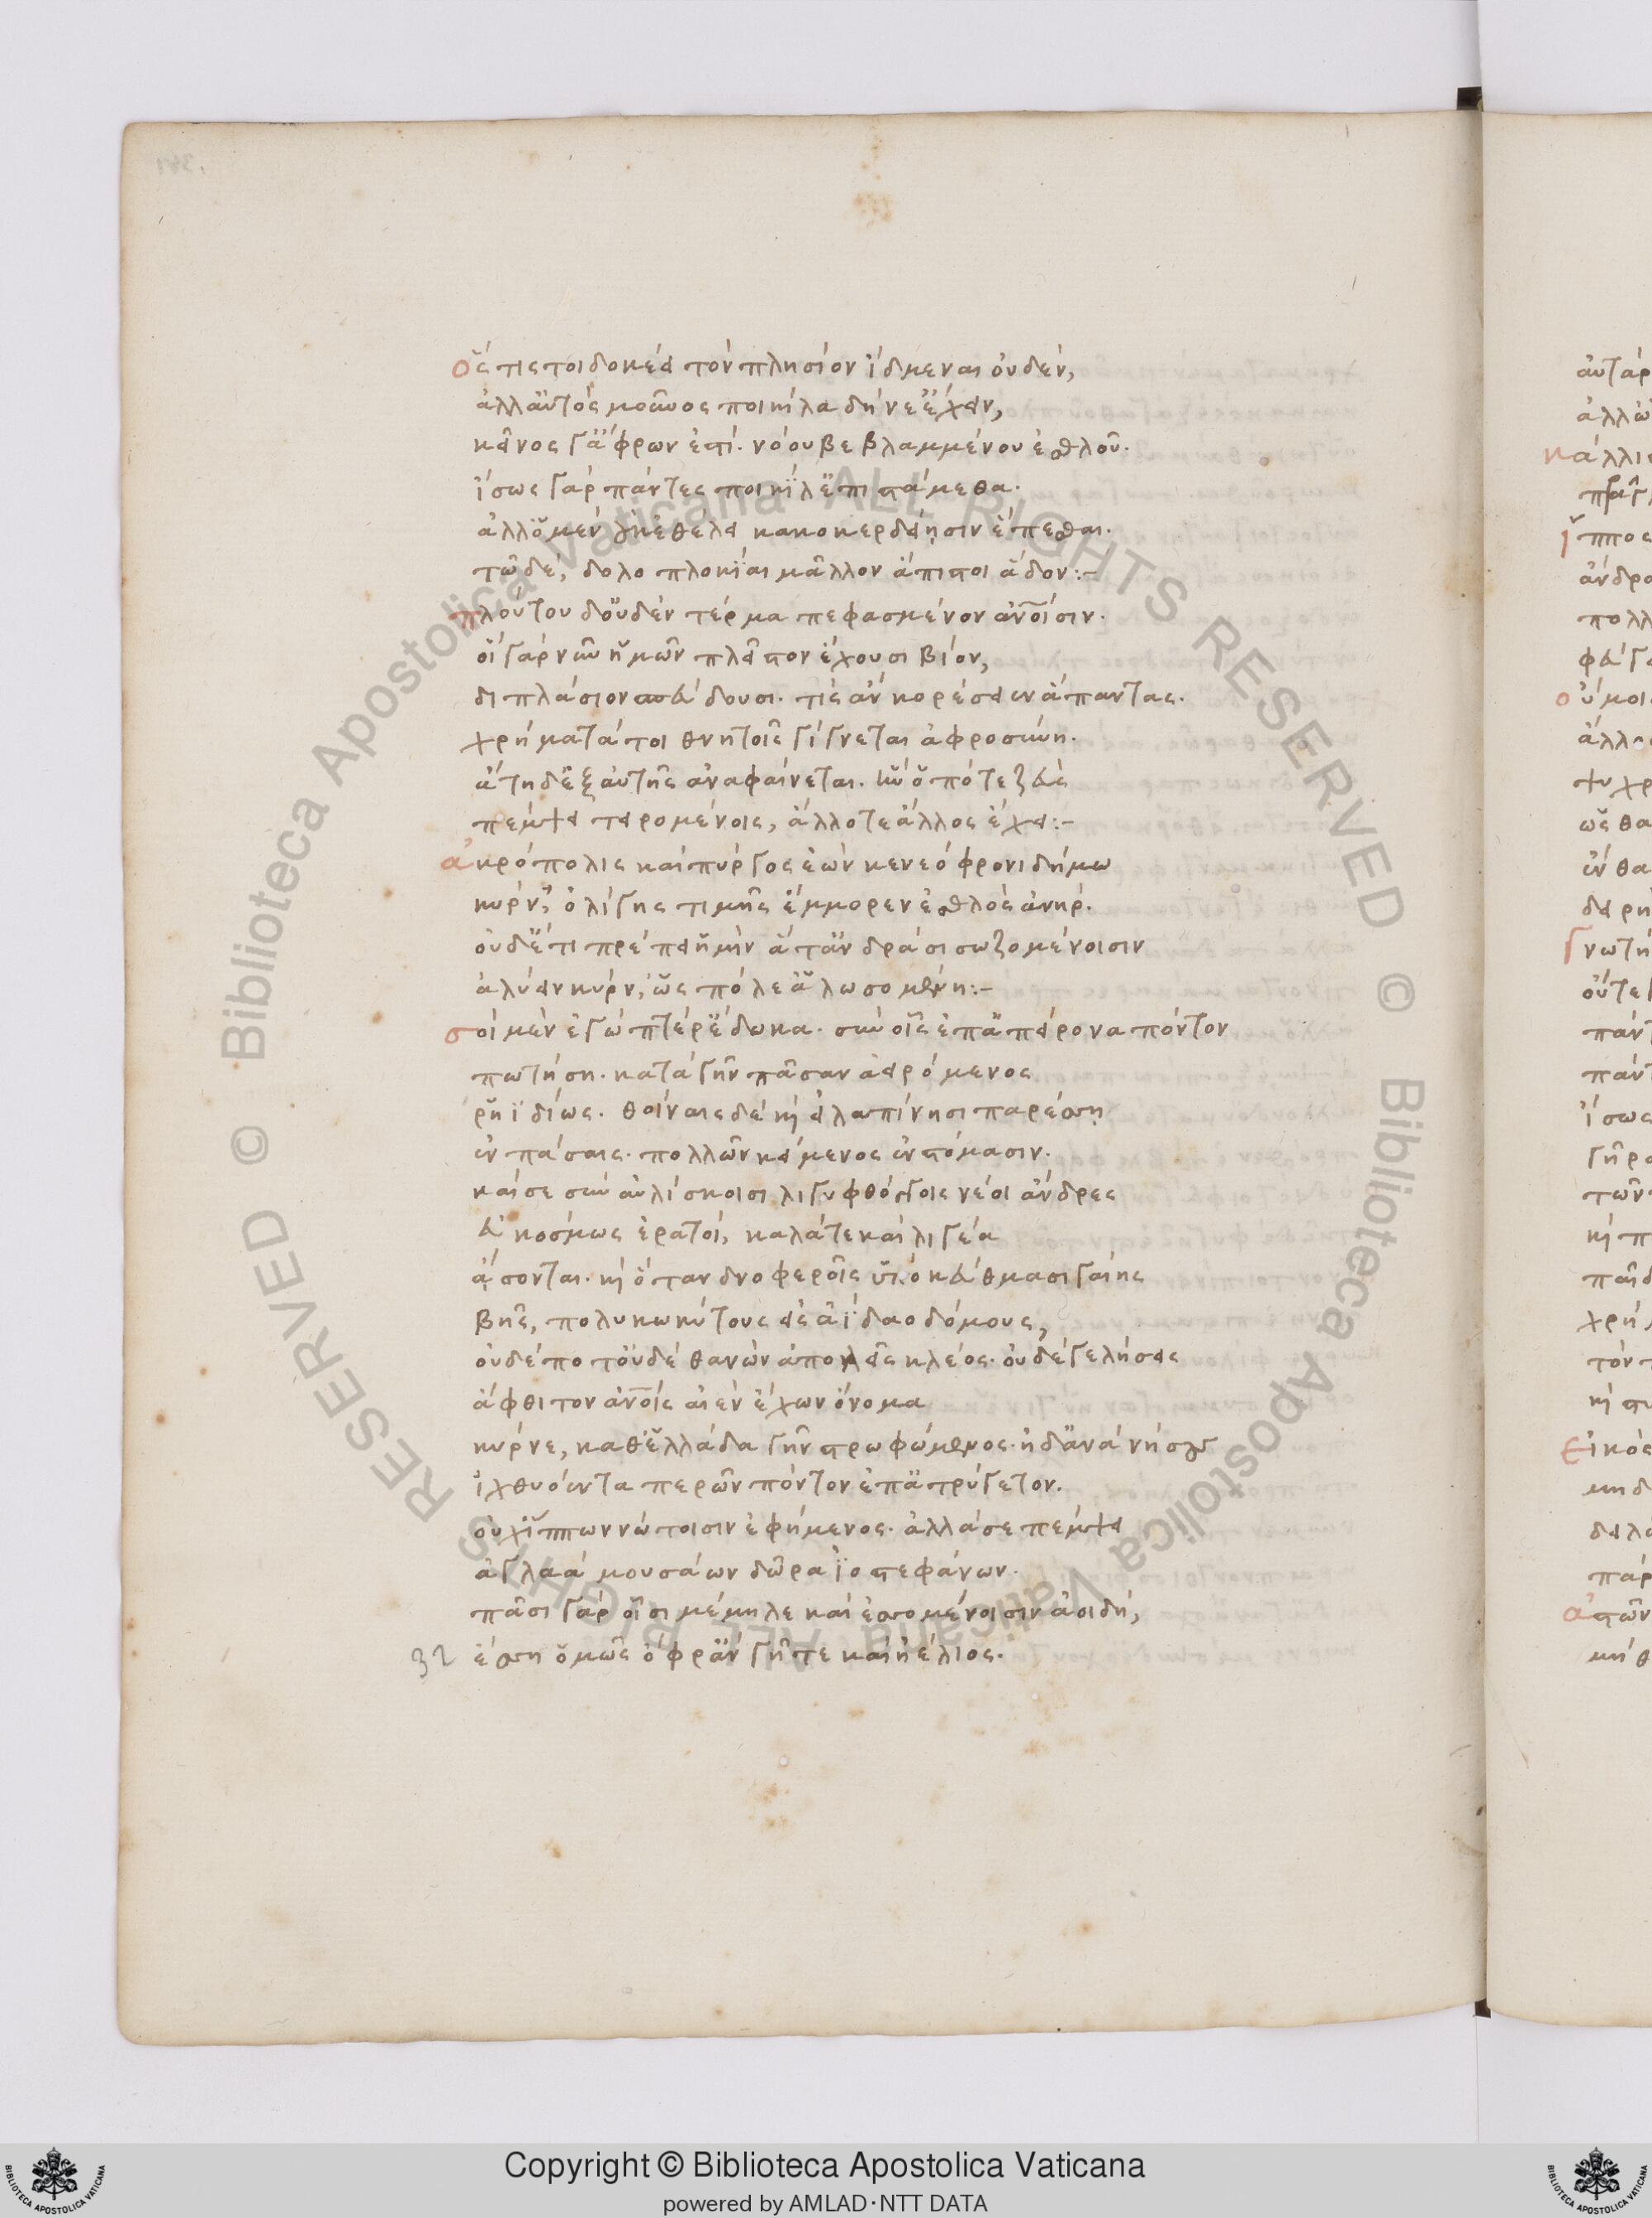 ὅς τις τοι δοκέει τὸν πλησίον ἴδμεναι οὐδέν,
ἀλλ' αὐτὸς μοῦνος ποικίλα δήνε' ἔχειν,
κεῖνος γ' ἄφρων ἐστί. νόου βεβλαμμένου ἐσθλοῦ.
ἴσως γὰρ πάντες ποικίλ' ἐπιστάμεθα.
ἀλλ' ὁ μὲν οὐκ ἐθέλει κακοκερδείῃσιν ἕπεσθαι.
τῶ δὲ, δολοπλοκίαι μᾶλλον ἄπιστοι ἅδον:-
πλούτου δ' οὐδὲν τέρμα πεφασμένον ἀνοῖσιν.
οἳ γὰρ νῦν ἡμῶν πλεῖστον ἔχουσι βίον,
διπλάσιον σπεύδουσι. τίς ἂν κορέσειεν ἅπαντας.
χρήματά τοι θνητοῖς γίγνεται ἀφροσύνη.
ἄτη δ' ἐξ αὐτῆς ἀναφαίνεται. ἣν ὁπότε ζεὺς
πέμψει τειρομένοις, ἄλλοτε ἄλλος ἔχει:-
ἀκρόπολις καὶ πύργος ἐὼν κενεόφρονι δήμω
κύρν', ὀλίγης τιμῆς ἔμμορεν ἐσθλὸς ἀνήρ.
οὐδέ τι πρέπει ἡμῖν ἅτ' ἀνδράσι σωζομένοισιν
ἀλύειν κύρν', ὡς πόλε ἁλωσομένη:-
σοὶ μὲν ἐγὼ πτέρ' ἔδωκα. σὺν οἷς ἐπ' ἀπείρονα πόντον
πωτήση. κατὰ γῆν πᾶσαν ἀειρόμενος
ῥηϊδίως. θοίναις δὲ κὶ εἰλαπίνησι παρέσσῃ
ἐν πάσαις. πολλῶν κείμενος ἐν στόμασιν.
καί σε σὺν αὐλίσκοισι λιγυφθόγγοις νέοι ἄνδρες
εὐκόσμως ἐρατοὶ, καλά τε καὶ λιγέα
ᾄσονται. κὶ ὅταν δνοφεροῖς ὑπὸ κεύθμασι γαίης
βῇς, πολυκωκύτους εἰς ἀΐδαο δόμους,
οὐδέποτ' οὐδὲ θανὼν ἀπολεῖς κλέος. οὐδέ γε λήσεις
ἄφθιτον ἀνοῖς αἰὲν ἔχων ὄνομα
κύρνε, καθ' ἑλλάδα γῆν στρωφώμενος. ἠδ' ἀνὰ νήσους
ἰχθυόεντα περῶν πόντον ἐπ' ἀτρύγετον.
οὐχ ἵππων νώτοισιν ἐφήμενος. ἀλλά σε πέμψει
ἀγλαὰ μουσάων δῶρα ἰοστεφάνων.
πᾶσι γὰρ οἷσι μέμηλε καὶ ἐσσομένοισιν ἀοιδή,
ἔσση ὁμῶς ὄφρ' ἂν γῆ τε καὶ ἠέλιος.
32
Copyright © Biblioteca Apostolica Vaticana
powered by AMLAD･NTT DATA